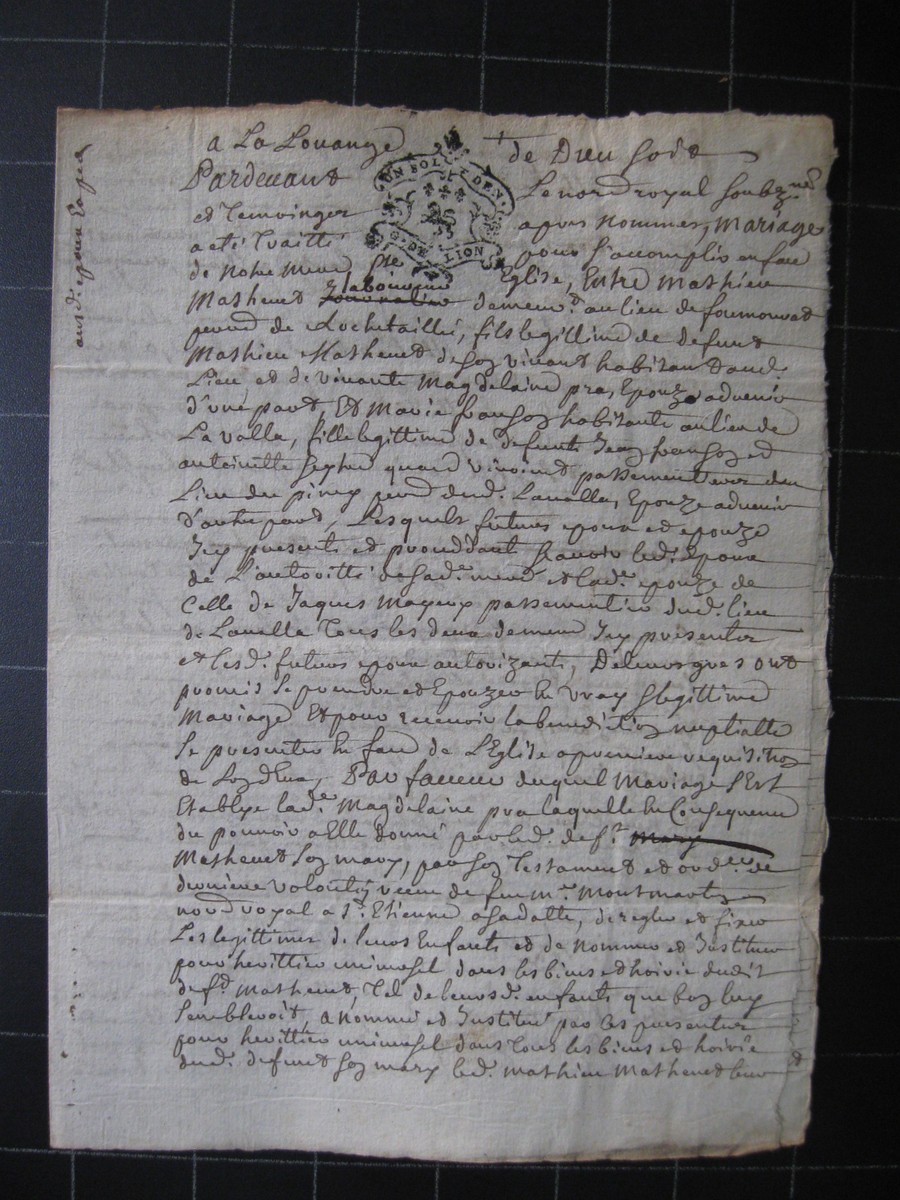 a La Louange de Dieu soit
Pardevant Le no.re royal soubz.né
et Temoings apres nommes, Mariage
a eté Traitté pour s'accomplir en face
UN SOL ET DEN.
G. DE LION
de notre mere Ste Eglise, Entre Mathieu
Mathevet laboureur demeur.t au lieu de
de Rochetaillé, fils legittime de defunt
Mathieu Mathevet de son vivant habitant aud.
Lieu et de vivante Magdelaine pra, Epoux advenir
d'une part, Et Marie franson habitante au lieu de
La valla, fille legittime de defunts Jean franson et
antoinette quand vivoient passementier du
Lieu du piney dud. Lavalla, Epouze advenir
d'autre part, Lesquels futurs epoux et epouze
Icy presents et procedant scavoir led. Epoux
de L'autoritté de sad.e mere et lad.e epouze de
Celle de Jaques Mayeux passementier dud. lieu
de Lavalla Tous les deux demeur Icy presentes
et lesd. futurs epoux autorizants, De leurs gres ont
promis se prendre et Epouzer En vray & legittime
Mariage Et pour recevoir la benediction nuptialle
Se presenter En face de L'Eglise a premiere requisition
de L'un d'eux, Par faveur duquel Mariage s'Est
Etablye lad.e Magdelaine pra laquelle En Consequence
du pouvoir a Elle donné par led. def.t mary
Mathevet son mary, par son Testament et ord.ce de
derniere volonté receu de feu m.e Montmartin
no.re royal a S.t Etienne a sa datte, de regler et fixer
Les legittimes de leurs Enfants et de nommer et Instituer
pour herittier universel dans les biens et hoirie dudit
def.t Mathevet, Tel de leurs d. enfants que bon luy
sembleroit, a nommé et Institué par Ces presentes
pour herittier universel dans Tous les biens et hoirie
dud. defunt son mary led. Mathieu Mathevet leur